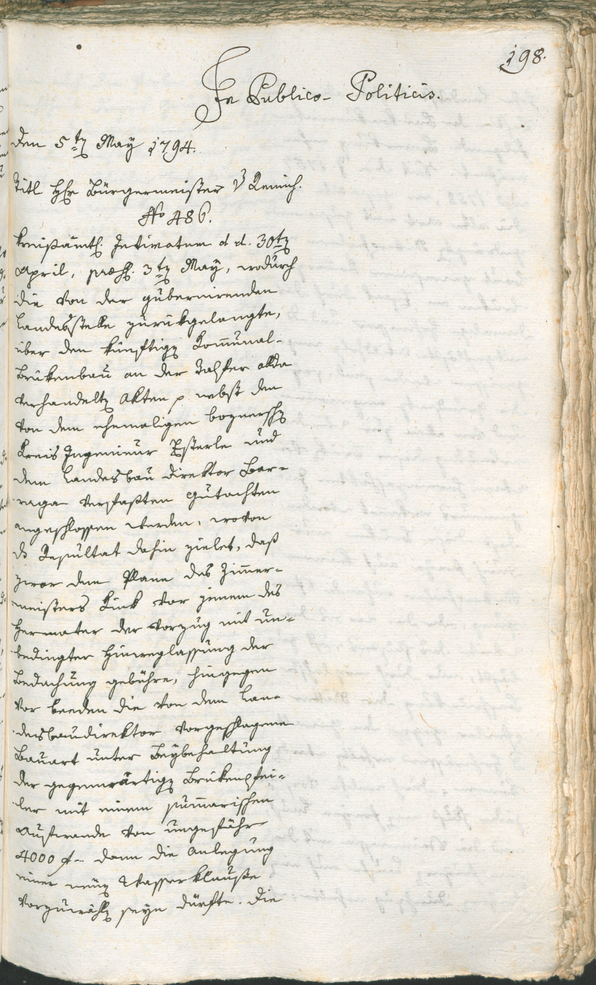 198.
In Publico-Politicis.
den 5ten May 1794.
Titl Hh Bürgermeister v Reinisch.
No 486.
Kreisämtl. Intimatum d. d. 30ten
April, praes. 3ten May, wodurch
die von der gubernirenden
Landesstelle zurückgelangte,
über den künftigen Communal-
Brükenbau an der Talfer alda
verhandelte Akten p nebst den
von dem ehemaligen boznerischen
Kreis Ingenieur Esterle und
dem Landesbau Direktor Bar-
raga verfaßten Gutachten
angeschlossen werden, wovon
ds Resultat dahin zielet, daß
zwar dem Plane des Zimmer-
meisters Link vor jenem des
Hermeter der Vorzug mit un-
bedingter Hinweglassung der
Bedachung gebühre, hingegen
vor beeden die von dem Lan-
desbaudirektor vorgeschlagene
Bauart unter Beybehaltung
der gegenwärtigen Brükenpfei-
ler mit einem summarischen
Aufwande von ungefähr
4000 f. dann die Anlegung
einer neuen Wasserklause
vorzuwählen seyn dürfte. Die